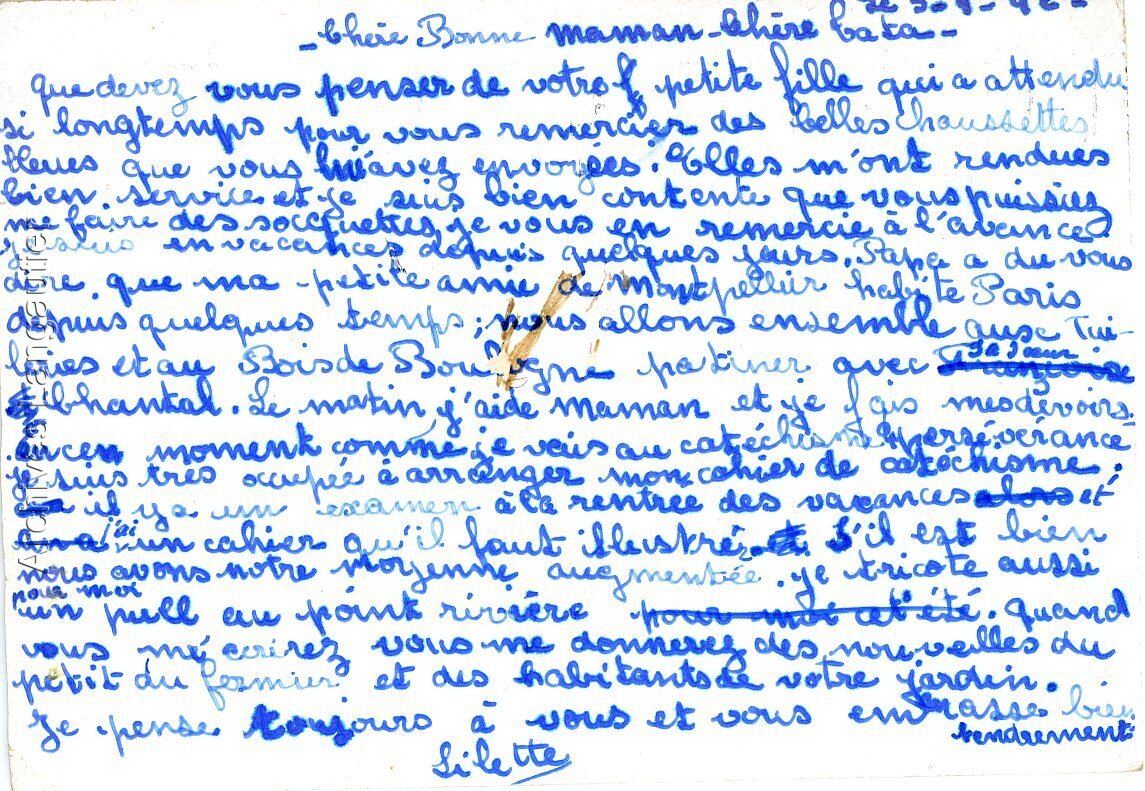 Le 3-4-42-
-Chère Bonne maman-Chère tata-
que devez vous penser de votre petite fille qui a attendu
si longtemps pour vous remercier des belles chaussettes
bleues que vous m'avez envoyées. Elles m'ont rendues
bien service et je suis bien contente que vous puissiez
me faire des socquettes, je vous en remercie à l'avance
je suis en vacances depuis quelques jours. Papa a du vous
dire que ma petite amie de Montpellier habite Paris
depuis quelques temps; nous allons ensemble aux Tui-
leries et au Bois de Boulogne patiner avec Françoise sa soeur
Chantal. Le matin j'aide maman et je fais mes devoirs.
en ce moment comme je vais au catéchisme persévérance
je suis très occupée à arranger mon cahier de catéchisme.
il y a un examen à la rentrée des vacances alors et
j'ai un cahier qu'il faut illustré. S'il est bien
nous avons notre moyenne augmentée. je tricote aussi
pour moi
un pull au point rivière pour moi cet été. Quand
vous m'écrirez vous me donnerez des nouvelles du
petit du fermier et des habitants de votre jardin.
Je pense toujours à vous et vous embrasse bien
tendrement
Lilette
Archives Langartier